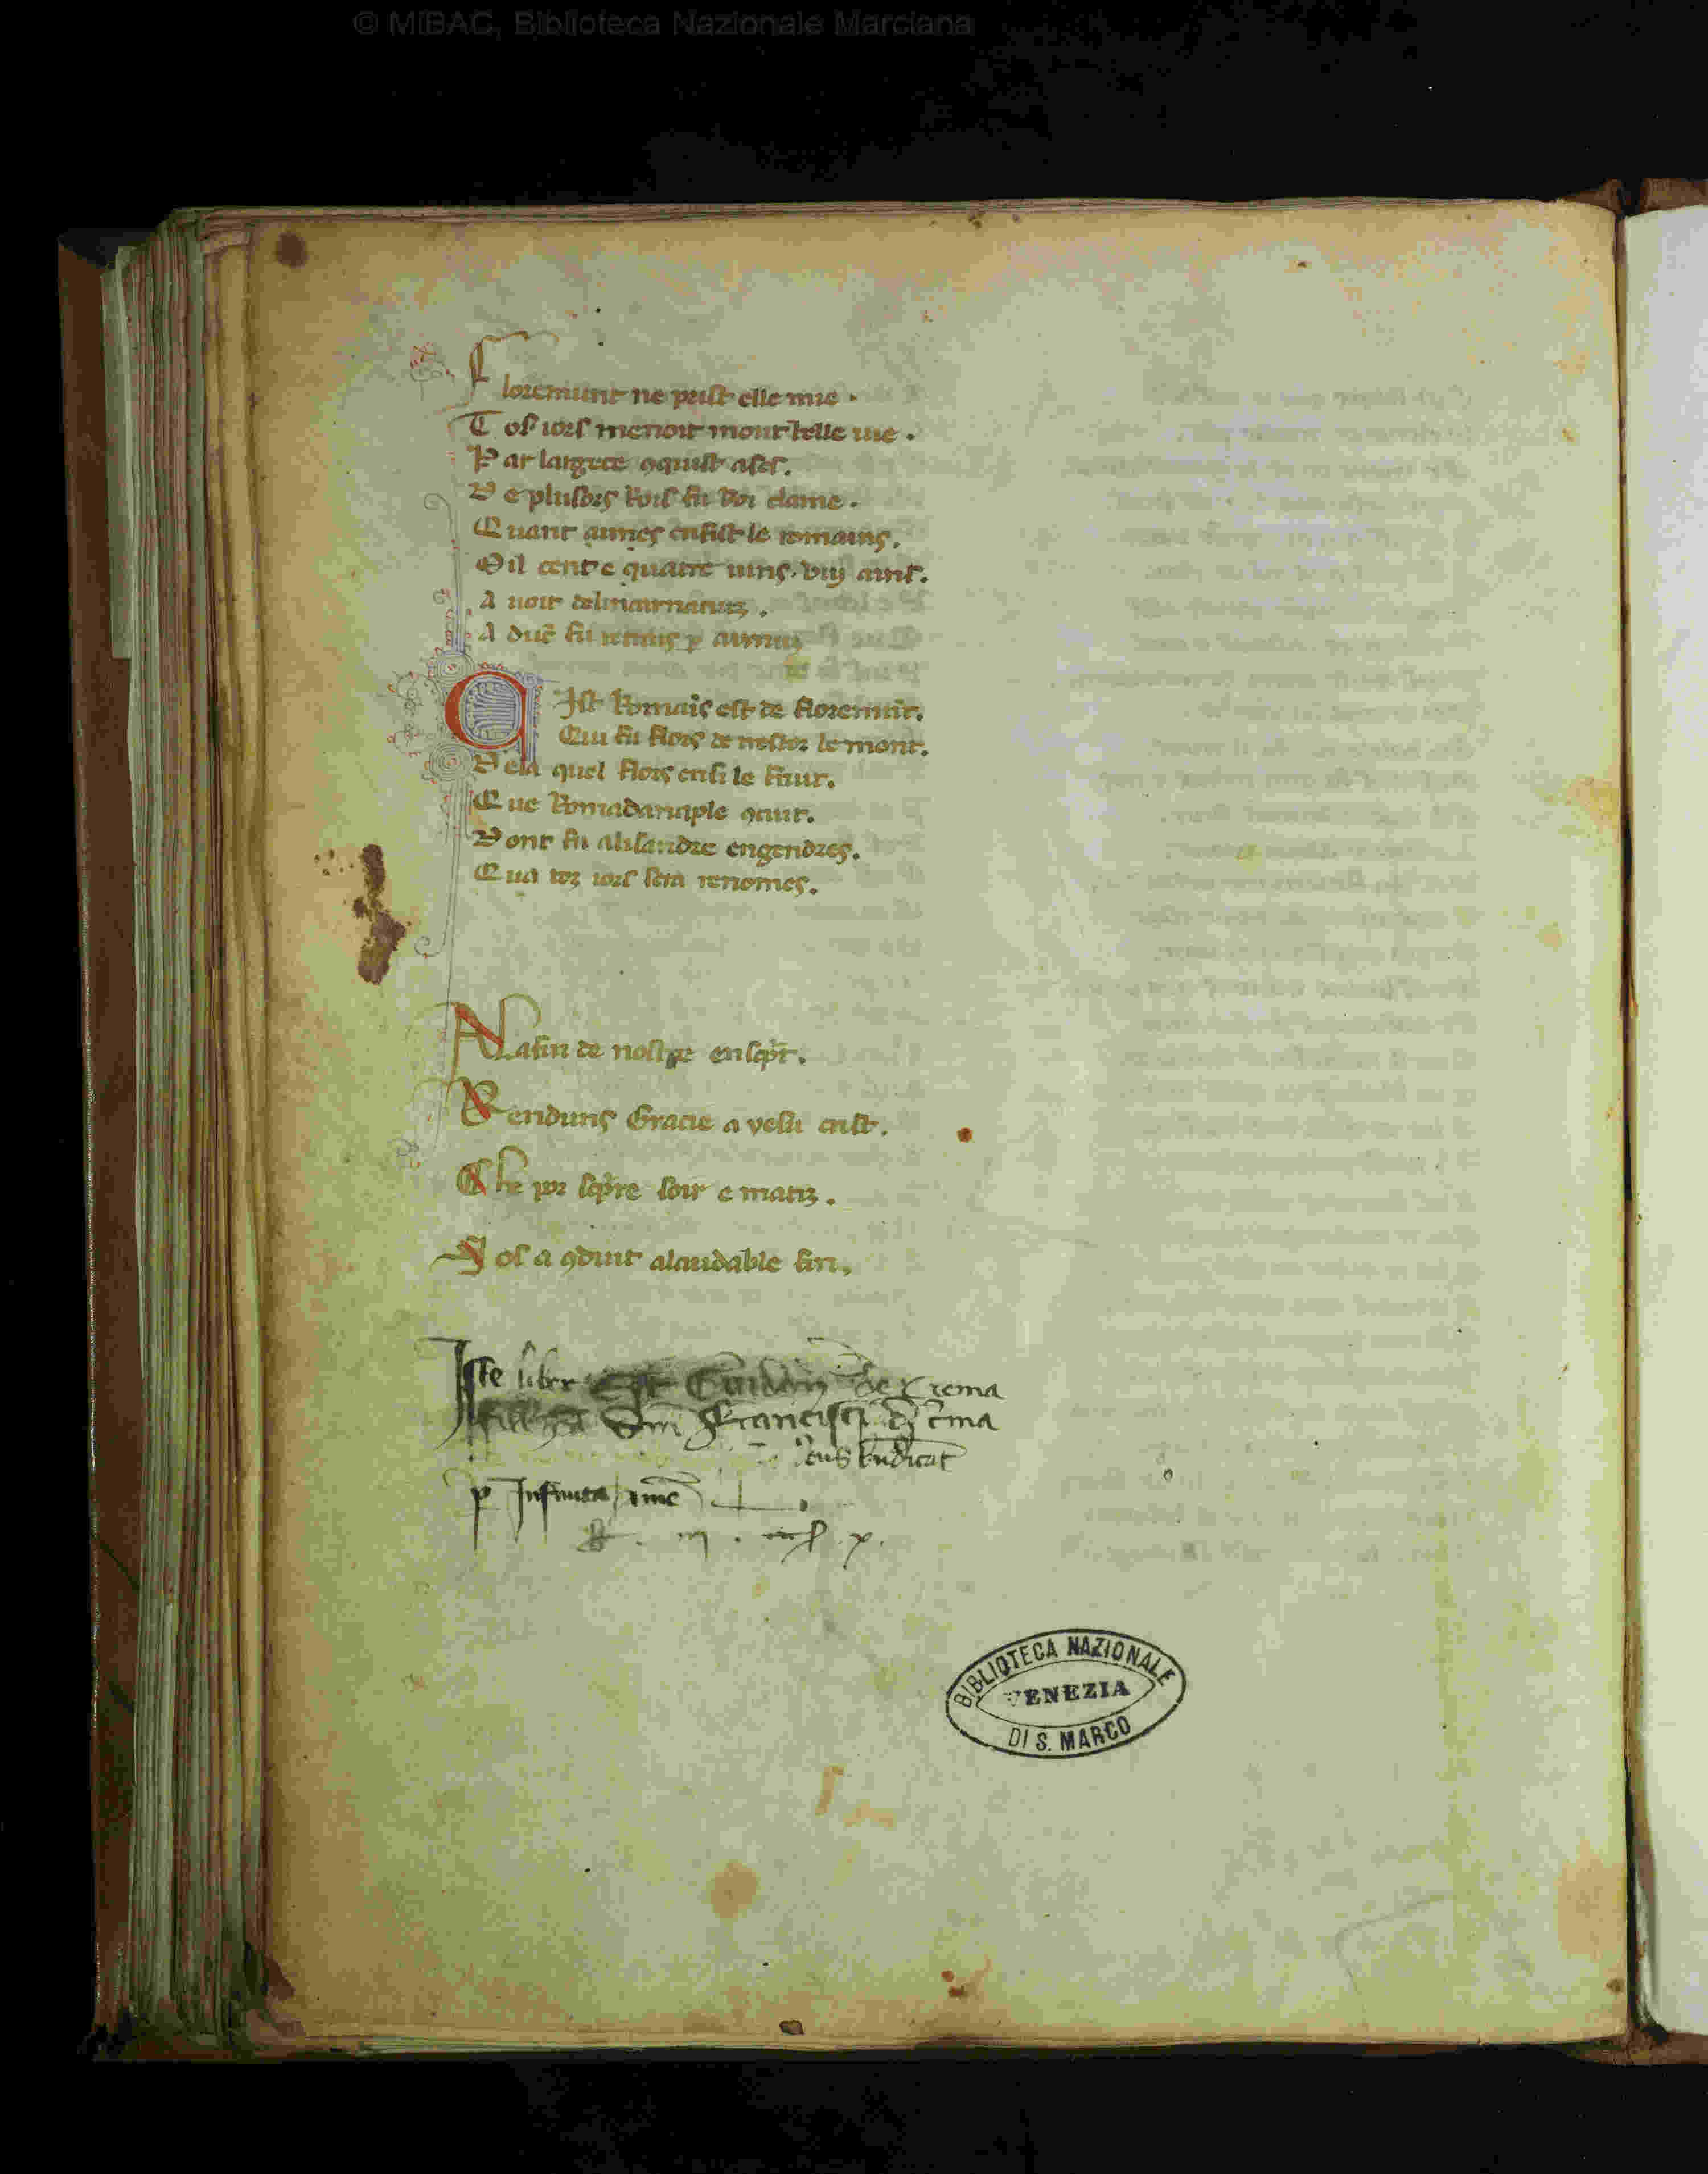 © MiBAC, Biblioteca Nazionale Marciana
Floremunt ne prist elle mie .
Tos iors menoit mout belle uie .
Par largece ꝯquist ases.
De plusors Rois fu Roi clame .
Quant aunes enfist le romains,
Mil cent e quatre uins . viij anns.
A uoir delincarnatiuz .
A duc̄ fu
Cist Romais est de floremūt.
Qui fu flors de trestoz le mont.
Dela quel flors ensi le fruit.
Que Romadanaple ꝯcuit.
Dont fu alisandre engendres.
Qua toz iors sera renomes.
Alafin de nostre
Renduns Gracie a yesu crist.
Che por soir e matiz .
Nos a ꝯduit alaudable fin,
Iste liber Est de Crema
Francisci
p
BIBLIOTECA NAZIONALE
VENEZIA
DI S. MARCO